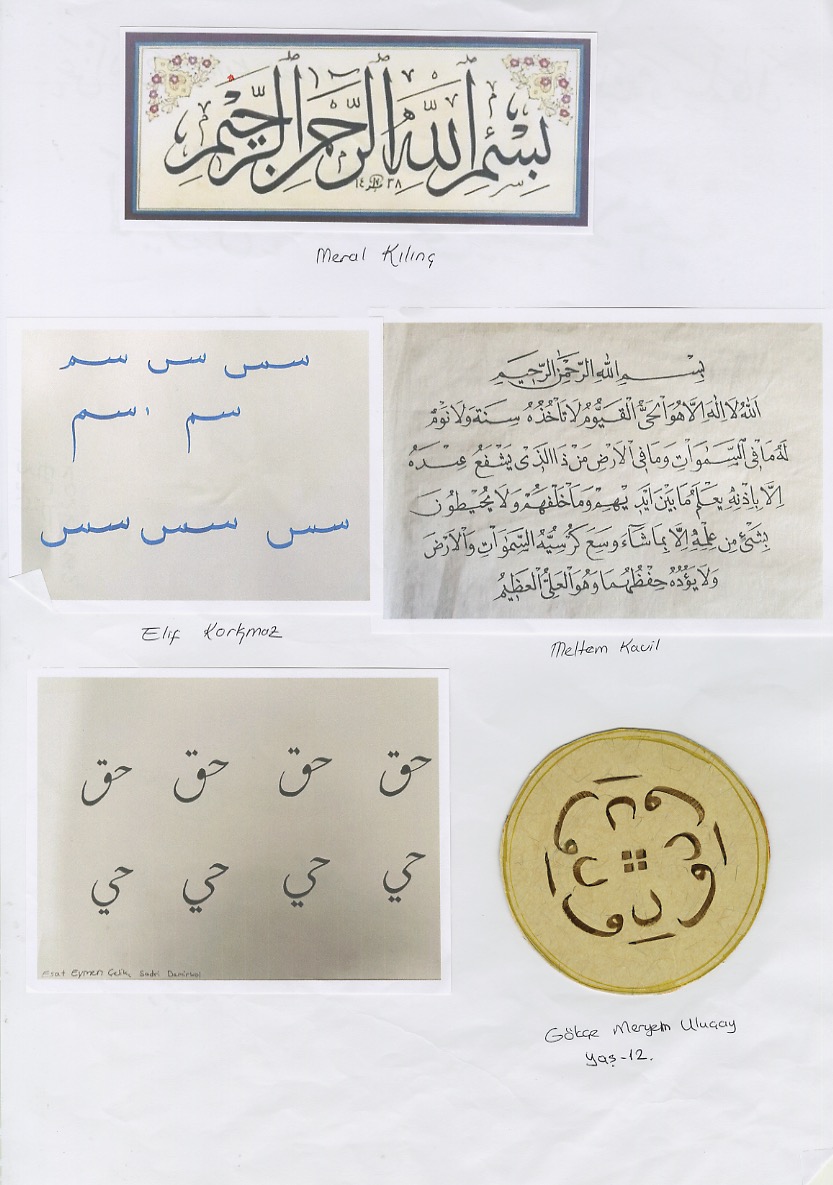 بِسْمِ اللّٰهِ الرَّحْمٰنِ الرَّحِيمِ
١٤٣٨
Meral Kılınç
سس سس سم
سم اسم
سس سس سس
Elif Korkmaz
بِسْمِ اللّٰهِ الرَّحْمٰنِ الرَّحِيمِ
اَللّٰهُ لَا اِلٰهَ اِلَّا هُوَ الْحَيُّ الْقَيُّومُ لَا تَأْخُذُهُ سِنَةٌ وَلَا نَوْمٌ
لَهُ مَا فِي السَّمٰوَاتِ وَمَا فِي الْاَرْضِ مَنْ ذَا الَّذِي يَشْفَعُ عِنْدَهُ
اِلَّا بِاِذْنِهِ يَعْلَمُ مَا بَيْنَ اَيْدِيهِمْ وَمَا خَلْفَهُمْ وَلَا يُحِيطُونَ
بِشَيْءٍ مِنْ عِلْمِهِ اِلَّا بِمَا شَاءَ وَسِعَ كُرْسِيُّهُ السَّمٰوَاتِ وَالْاَرْضَ
وَلَا يَؤُدُهُ حِفْظُهُمَا وَهُوَ الْعَلِيُّ الْعَظِيمُ
Meltem Kavil
حق حق حق حق
حي حي حي حي
Esat Eymen Çelik Sadri Demirkol
Gökçe Meryem Uluçay
Yaş-12.